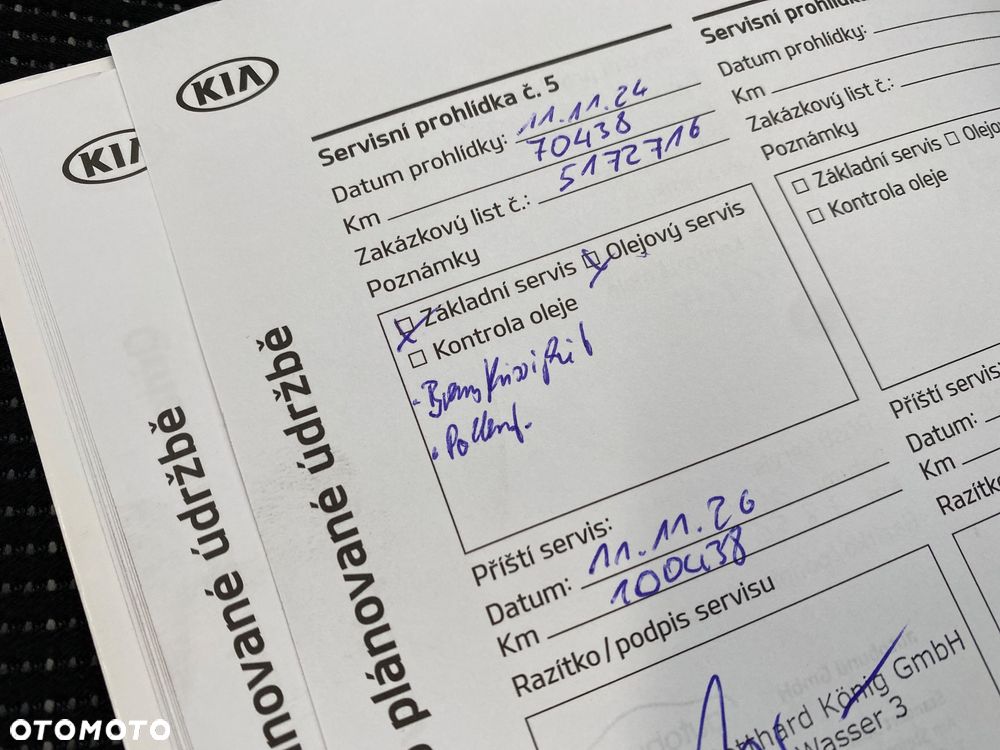 KIA
KIA
Servisní prohlídka č. 5
Datum prohlídky: 11.11.24
Km 70438
Zakázkový list č.: 5172716
Poznámky
Základní servis Olejový servis
Kontrola oleje
Příští servis:
Datum: 11.11.26
Km 100438
Razítko/podpis servisu
König GmbH
Wasser 3
Servisní
Datum prohlídky:
Km
Zakázkový list č.:
Poznámky
Základní servis
Kontrola oleje
Příští servis
Datum:
Km
plánované údržbě
údržbě
OTOMOTO